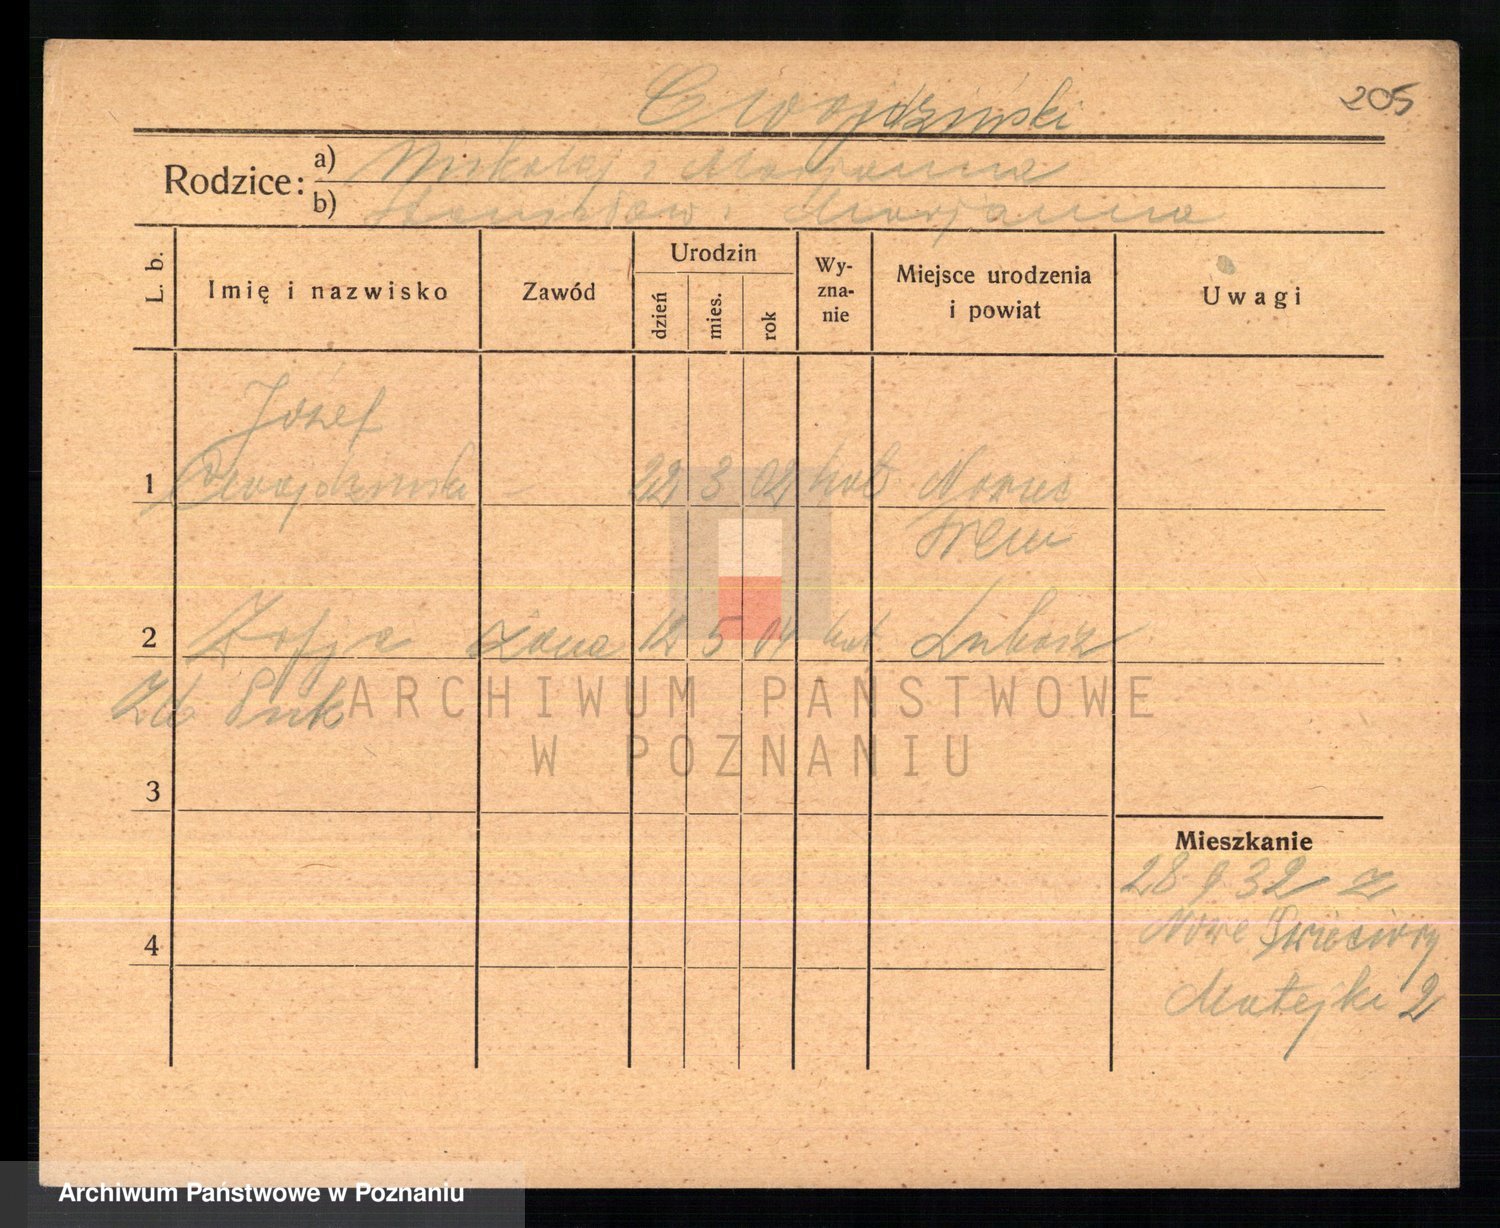 Cwojdziński
205
Rodzice:
a) Mikołaj i Marjanna
b) Stanisław i Marjanna
L. b.
Imię i nazwisko
Zawód
Urodzin
dzień
mies.
rok
Wy-
zna-
nie
Miejsce urodzenia
i powiat
Uwagi
Józef
1 Cwojdziński - 22 3 02 kat
Śrem
2 Zofja żona 12 5 04 kat. Lubosz
3
4
Mieszkanie
28 9 32 z
Nowe
Matejki 2
ARCHIWUM PAŃSTWOWE
W POZNANIU
Archiwum Państwowe w Poznaniu